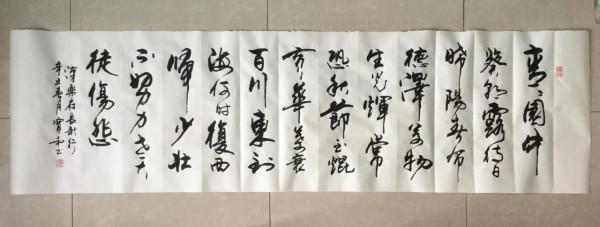 青々園中
葵朝露待日
晞陽春布
德澤萬物
生光輝常
恐秋節至焜
黄華葉衰
百川東到
海何时復西
歸少壯
不努力老大
徒傷悲
漢樂府長歌行
辛丑春月